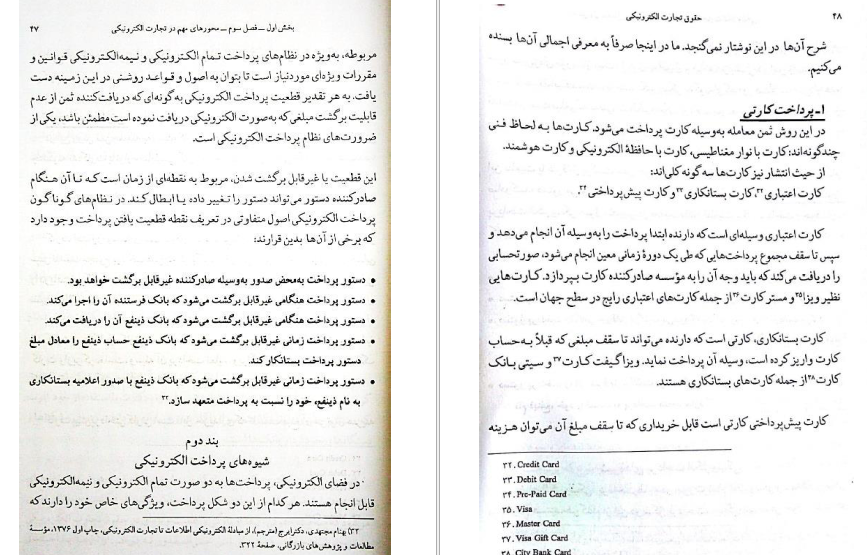 بخش اول ــ فصل سوم ــ محورهای مهم در تجارت الکترونیکی ۴۷
مربوطه، به‌ویژه در نظام‌های پرداخت تمام الکترونیکی و نیمه‌الکترونیکی قوانین و
مقررات ویژه‌ای موردنیاز است تا بتوان به اصول و قواعد روشنی در این زمینه دست
یافت. به هر تقدیر قطعیت پرداخت الکترونیکی به گونه‌ای که دریافت‌کننده ثمن از عدم
قابلیت برگشت مبلغی که به‌صورت الکترونیکی دریافت نموده است مطمئن باشد، یکی از
ضرورت‌های نظام پرداخت الکترونیکی است.
این قطعیت یا غیرقابل برگشت شدن، مربوط به نقطه‌ای از زمان است که تا آن هنگام
صادرکننده دستور می‌تواند دستور را تغییر داده یا ابطال کند. در نظام‌های گوناگون
پرداخت الکترونیکی اصول متفاوتی در تعریف نقطه قطعیت یافتن پرداخت وجود دارد
که برخی از آن‌ها بدین قرارند:
• دستور پرداخت به‌محض صدور به‌وسیله صادرکننده غیرقابل برگشت خواهد بود.
• دستور پرداخت هنگامی غیرقابل برگشت می‌شود که بانک فرستنده آن را اجرا می‌کند.
• دستور پرداخت هنگامی غیرقابل برگشت می‌شود که بانک ذینفع آن را دریافت می‌کند.
• دستور پرداخت زمانی غیرقابل برگشت می‌شود که بانک ذینفع حساب ذینفع را معادل مبلغ
دستور پرداخت بستانکار کند.
• دستور پرداخت زمانی غیرقابل برگشت می‌شود که بانک ذینفع با صدور اعلامیه بستانکاری
به نام ذینفع، خود را نسبت به پرداخت متعهد سازد.۳۲
بند دوم
شیوه‌های پرداخت الکترونیکی
در فضای الکترونیکی، پرداخت‌ها به دو صورت تمام الکترونیکی و نیمه‌الکترونیکی
قابل انجام هستند. هر کدام از این دو شکل پرداخت، ویژگی‌های خاص خود را دارند که
۳۲) بهنام مجتهدی، دکتر ایرج (مترجم)، از مبادلهٔ الکترونیکی اطلاعات تا تجارت الکترونیکی، چاپ اول ۱۳۷۶، مؤسسهٔ
مطالعات و پژوهش‌های بازرگانی، صفحهٔ ۳۲۲.
۴۸ حقوق تجارت الکترونیکی
شرح آن‌ها در این نوشتار نمی‌گنجد. ما در اینجا صرفاً به معرفی اجمالی آن‌ها بسنده
می‌کنیم.
۱ـ پرداخت کارتی
در این روش ثمن معامله به‌وسیله کارت پرداخت می‌شود. کارت‌ها به لحاظ فنی
چندگونه‌اند: کارت با نوار مغناطیسی، کارت با حافظهٔ الکترونیکی و کارت هوشمند.
از حیث انتشار نیز کارت‌ها سه گونه کلی‌اند:
کارت اعتباری۳۲، کارت بستانکاری۳۳ و کارت پیش‌پرداختی۳۴.
کارت اعتباری وسیله‌ای است که دارنده ابتدا پرداخت را به‌وسیله آن انجام می‌دهد و
سپس تا سقف مجموع پرداخت‌هایی که طی یک دورهٔ زمانی معین انجام می‌شود، صورتحسابی
را دریافت می‌کند که باید وجه آن را به مؤسسه صادرکننده کارت بپردازد. کارت‌هایی
نظیر ویزا۳۵ و مستر کارت۳۶ از جمله کارت‌های اعتباری رایج در سطح جهان است.
کارت بستانکاری، کارتی است که دارنده می‌تواند تا سقف مبلغی که قبلاً به حساب
کارت واریز کرده است، وسیله آن پرداخت نماید. ویزا گیفت کارت۳۷ و سیتی بانک
کارت۳۸ از جمله کارت‌های بستانکاری هستند.
کارت پیش‌پرداختی کارتی است قابل خریداری که تا سقف مبلغ آن می‌توان هزینه
۳۲. Credit Card
۳۳. Debit Card
۳۴. Pre-Paid Card
۳۵. Visa
۳۶. Master Card
۳۷. Visa Gift Card
۳۸. City Bank Card